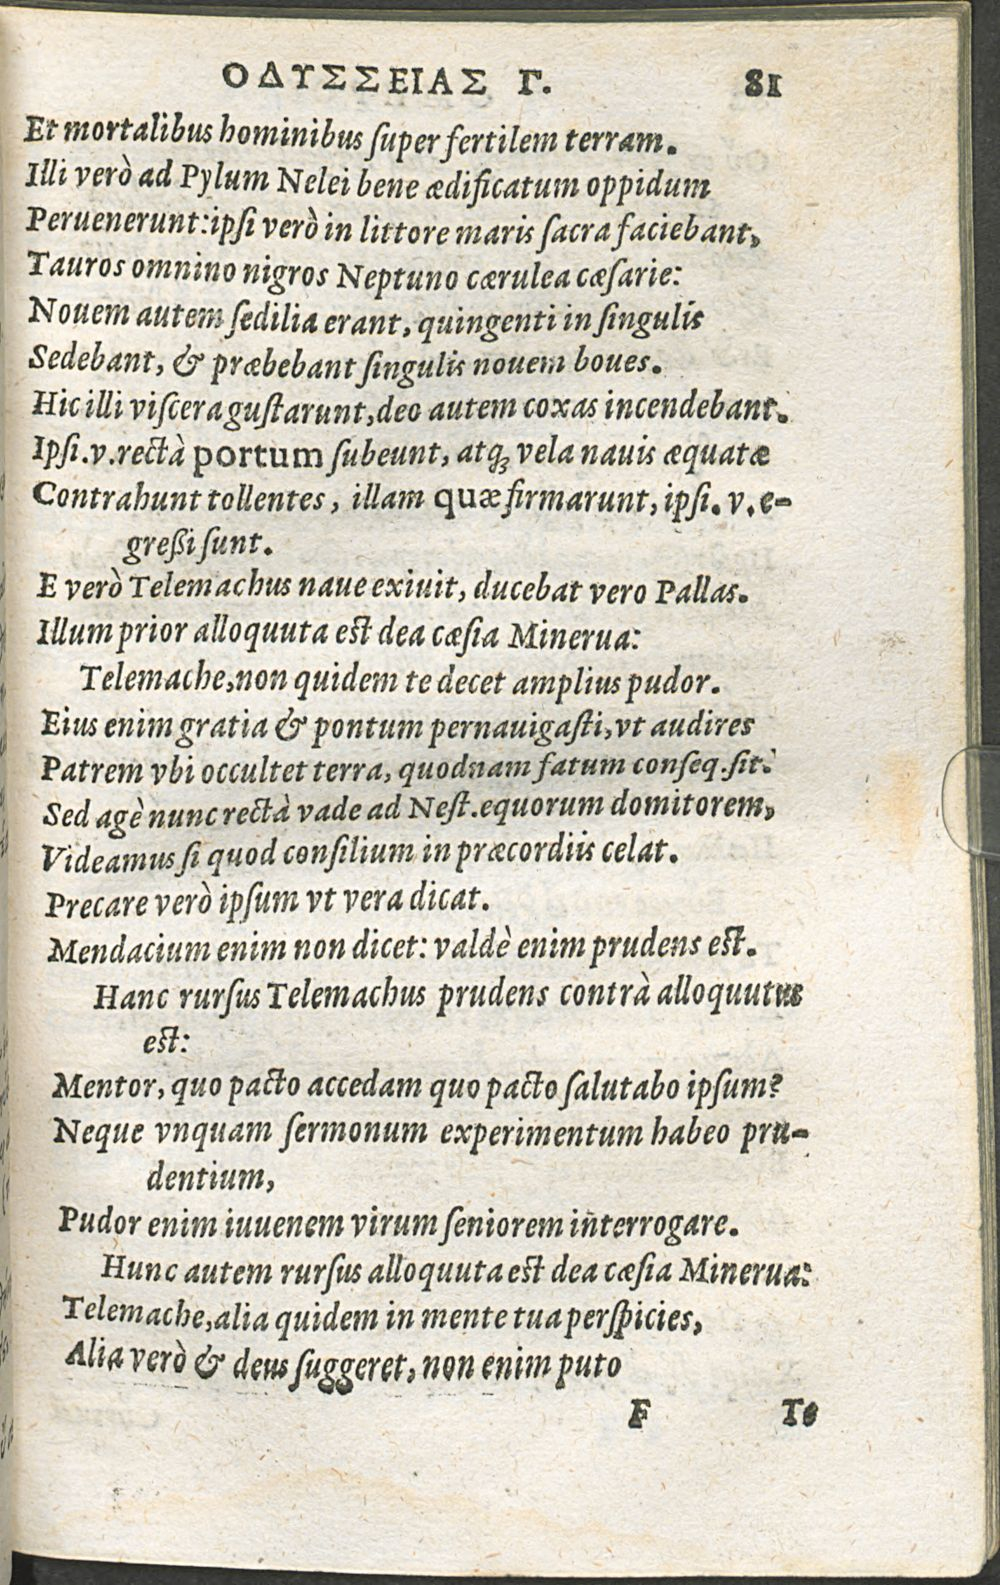 ΟΔΥΣΣΕΙΑΣ Γ. 81
Et mortalibus hominibus ſuper fertilem terram.
Illi verò ad Pylum Nelei bene ædificatum oppidum
Peruenerunt: ipſi verò in littore maris ſacra faciebant,
Tauros omnino nigros Neptuno cærulea cæſarie:
Nouem autem ſedilia erant, quingenti in ſingulis
Sedebant, & præbebant ſingulis nouem boues.
Hic illi viſcera guſtarunt, deo autem coxas incendebant.
Ipſi.v.rectà portum ſubeunt, atq; vela nauis æquatæ
Contrahunt tollentes, illam quæ firmarunt, ipſi.v.e-
greßi ſunt.
E verò Telemachus naue exiuit, ducebat vero Pallas.
Illum prior alloquuta eſt dea cæſia Minerua:
Telemache, non quidem te decet amplius pudor.
Eius enim gratia & pontum pernauigaſti, vt audires
Patrem vbi occultet terra, quodnam fatum conſeq.ſit:
Sed agè nunc rectà vade ad Neſt.equorum domitorem,
Videamus ſi quod conſilium in præcordiis celat.
Precare verò ipſum vt vera dicat.
Mendacium enim non dicet: valdè enim prudens eſt.
Hanc rurſus Telemachus prudens contrà alloquutus
eſt:
Mentor, quo pacto accedam quo pacto ſalutabo ipſum?
Neque vnquam ſermonum experimentum habeo pru-
dentium,
Pudor enim iuuenem virum ſeniorem interrogare.
Hunc autem rurſus alloquuta eſt dea cæſia Minerua:
Telemache, alia quidem in mente tua perſpicies,
Alia verò & deus ſuggeret, non enim puto
F Te